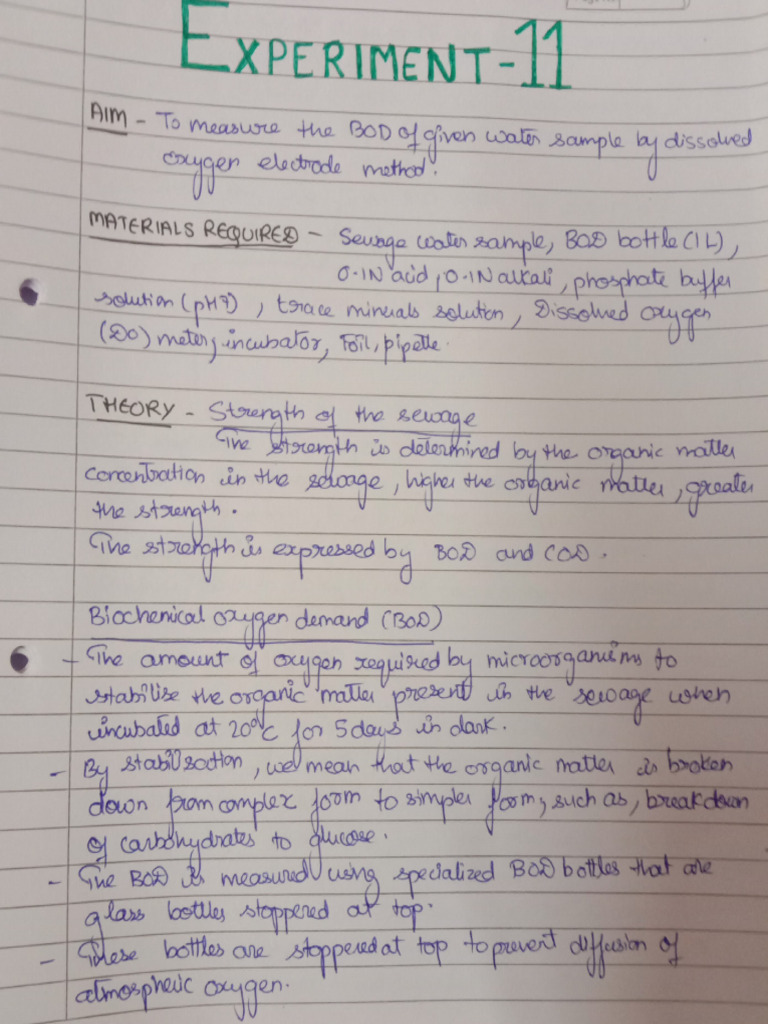 EXPERIMENT-11
AIM - To measure the BOD of given water sample by dissolved
oxygen electrode method.
MATERIALS REQUIRED - Sewage water sample, BOD bottle (1L),
0.1N acid, 0.1N alkali, phosphate buffer
solution (pH7), trace minerals solution, Dissolved oxygen
(DO) meter, incubator, Foil, pipette.
THEORY - Strength of the sewage
The strength is determined by the organic matter
concentration in the sewage, higher the organic matter, greater
the strength.
The strength is expressed by BOD and COD.
Biochemical oxygen demand (BOD)
- The amount of oxygen required by microorganisms to
stabilise the organic matter present in the sewage when
incubated at 20°C for 5 days in dark.
- By stabilisation, we mean that the organic matter is broken
down from complex form to simpler form, such as, breakdown
of carbohydrates to glucose.
- The BOD is measured using specialized BOD bottles that are
glass bottles stoppered at top.
- These bottles are stoppered at top to prevent diffusion of
atmospheric oxygen.